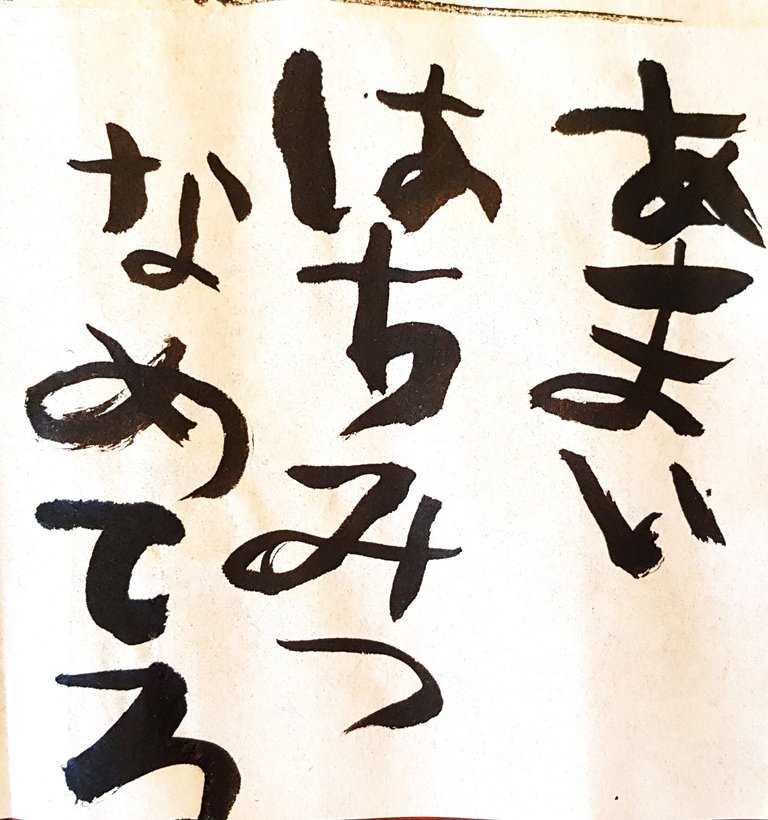 あまい
はちみつ
なめてろ